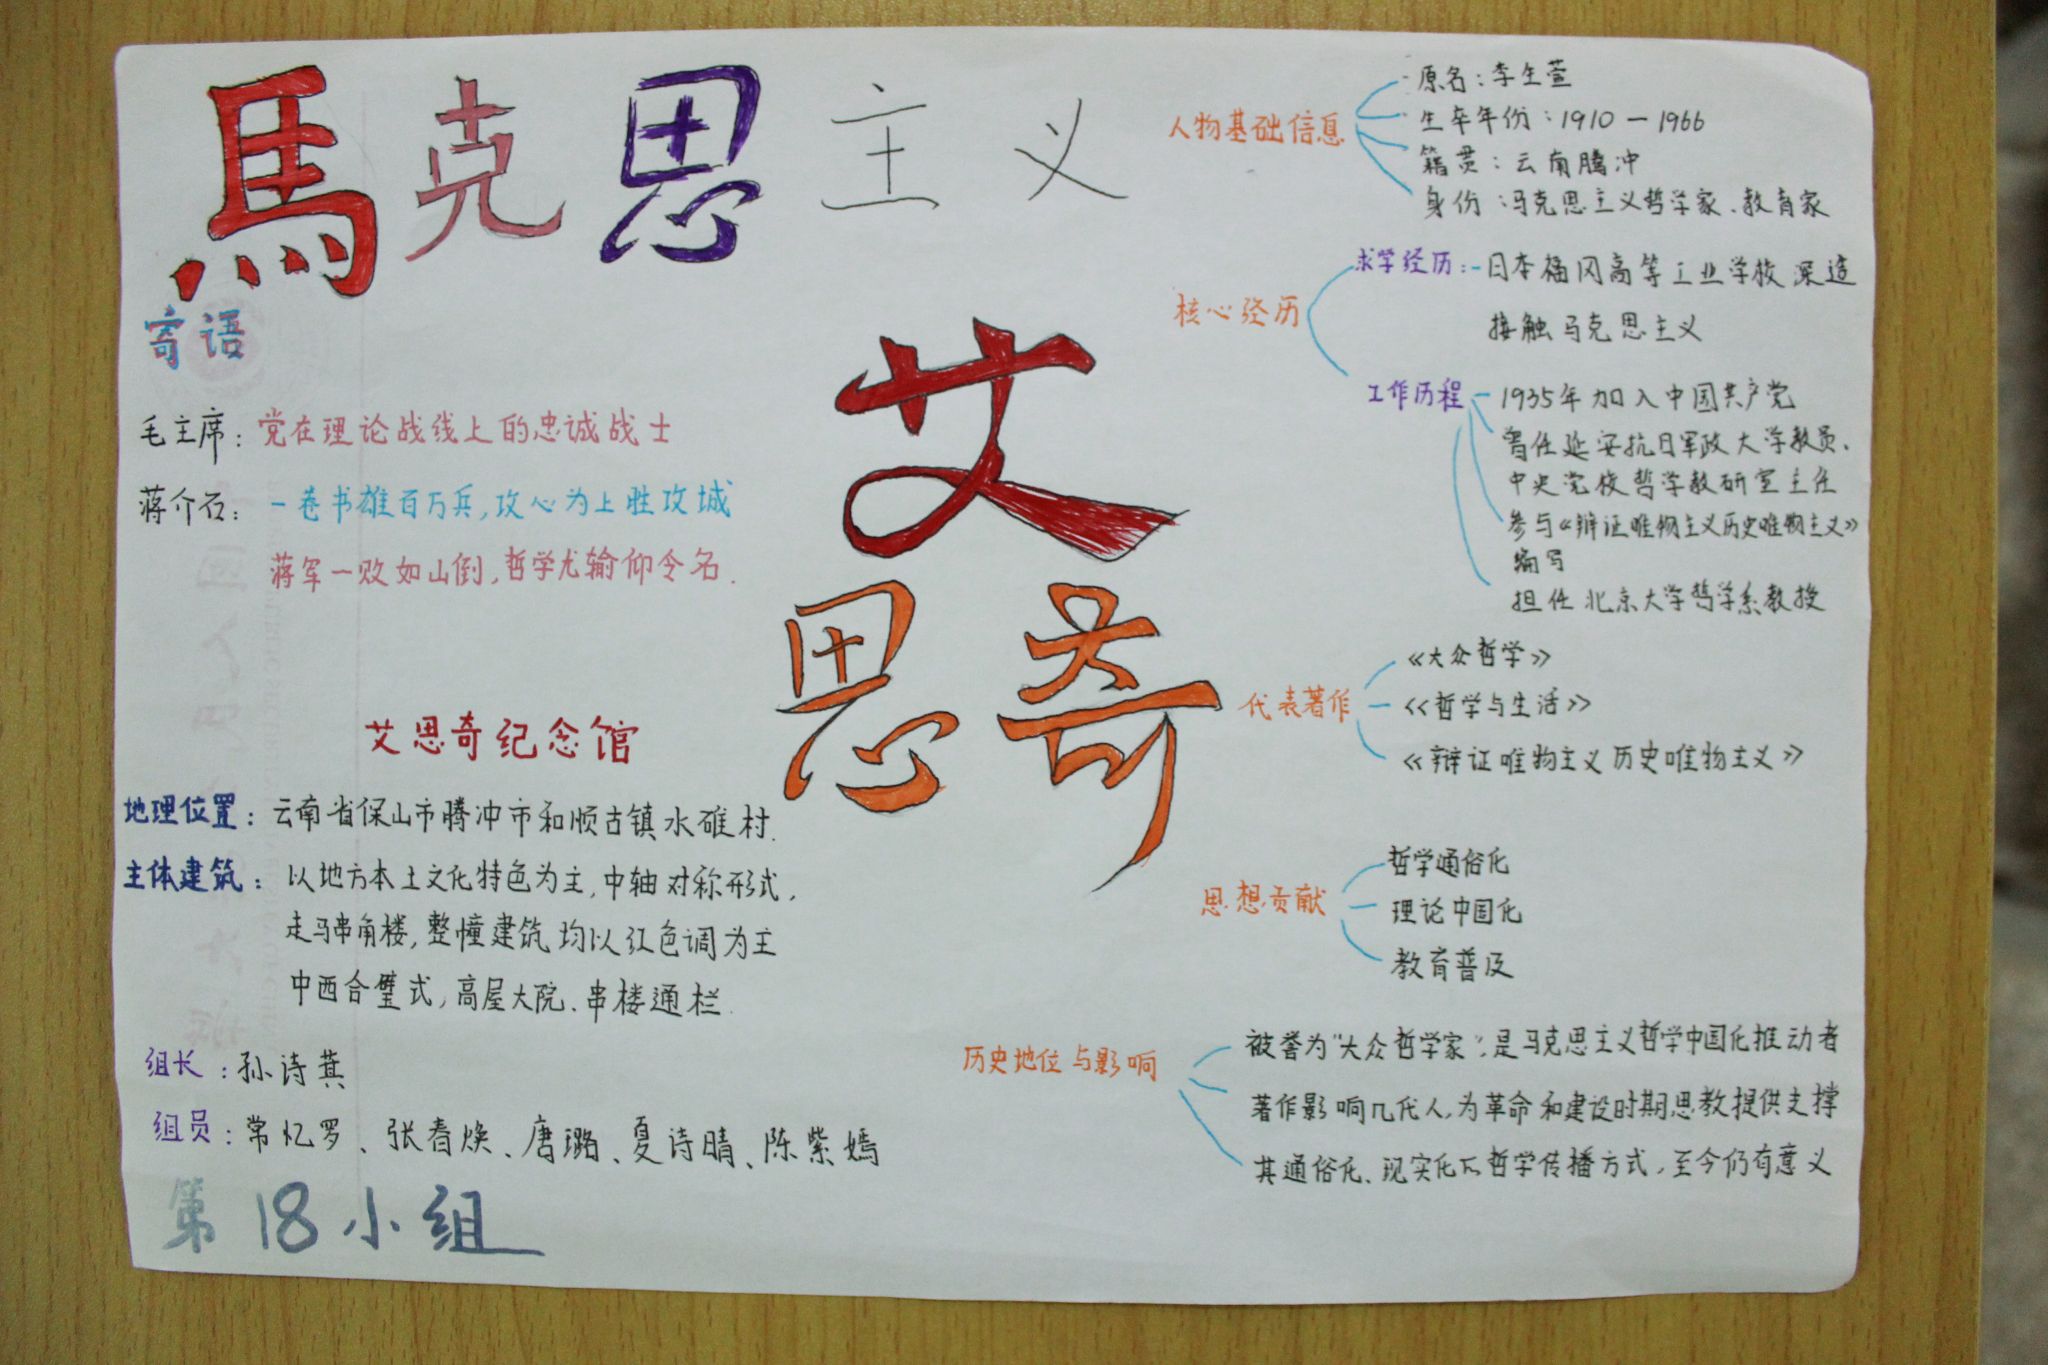 馬克思主义
寄语
毛主席：党在理论战线上的忠诚战士
蒋介石：一卷书雄百万兵，攻心为上胜攻城
蒋军一败如山倒，哲学尤输仰令名.
艾思奇
艾思奇纪念馆
地理位置：云南省保山市腾冲市和顺古镇水碓村.
主体建筑：以地方本土文化特色为主，中轴对称形式，
走马串角楼，整幢建筑均以红色调为主
中西合璧式，高屋大院、串楼通栏.
组长：孙诗萁
组员：常忆罗、张春焕、唐璐、夏诗晴、陈紫嫣
第18小组
人物基础信息
原名：李生萱
生卒年份：1910－1966
籍贯：云南腾冲
身份：马克思主义哲学家、教育家
核心经历
求学经历：日本福冈高等工业学校深造
接触马克思主义
工作历程
1935年加入中国共产党
曾任延安抗日军政大学教员、
中央党校哲学教研室主任
参与《辩证唯物主义历史唯物主义》
编写
担任北京大学哲学系教授
代表著作
《大众哲学》
《哲学与生活》
《辩证唯物主义历史唯物主义》
思想贡献
哲学通俗化
理论中国化
教育普及
历史地位与影响
被誉为“大众哲学家”，是马克思主义哲学中国化推动者
著作影响几代人，为革命和建设时期思教提供支撑
其通俗化、现实化的哲学传播方式，至今仍有意义